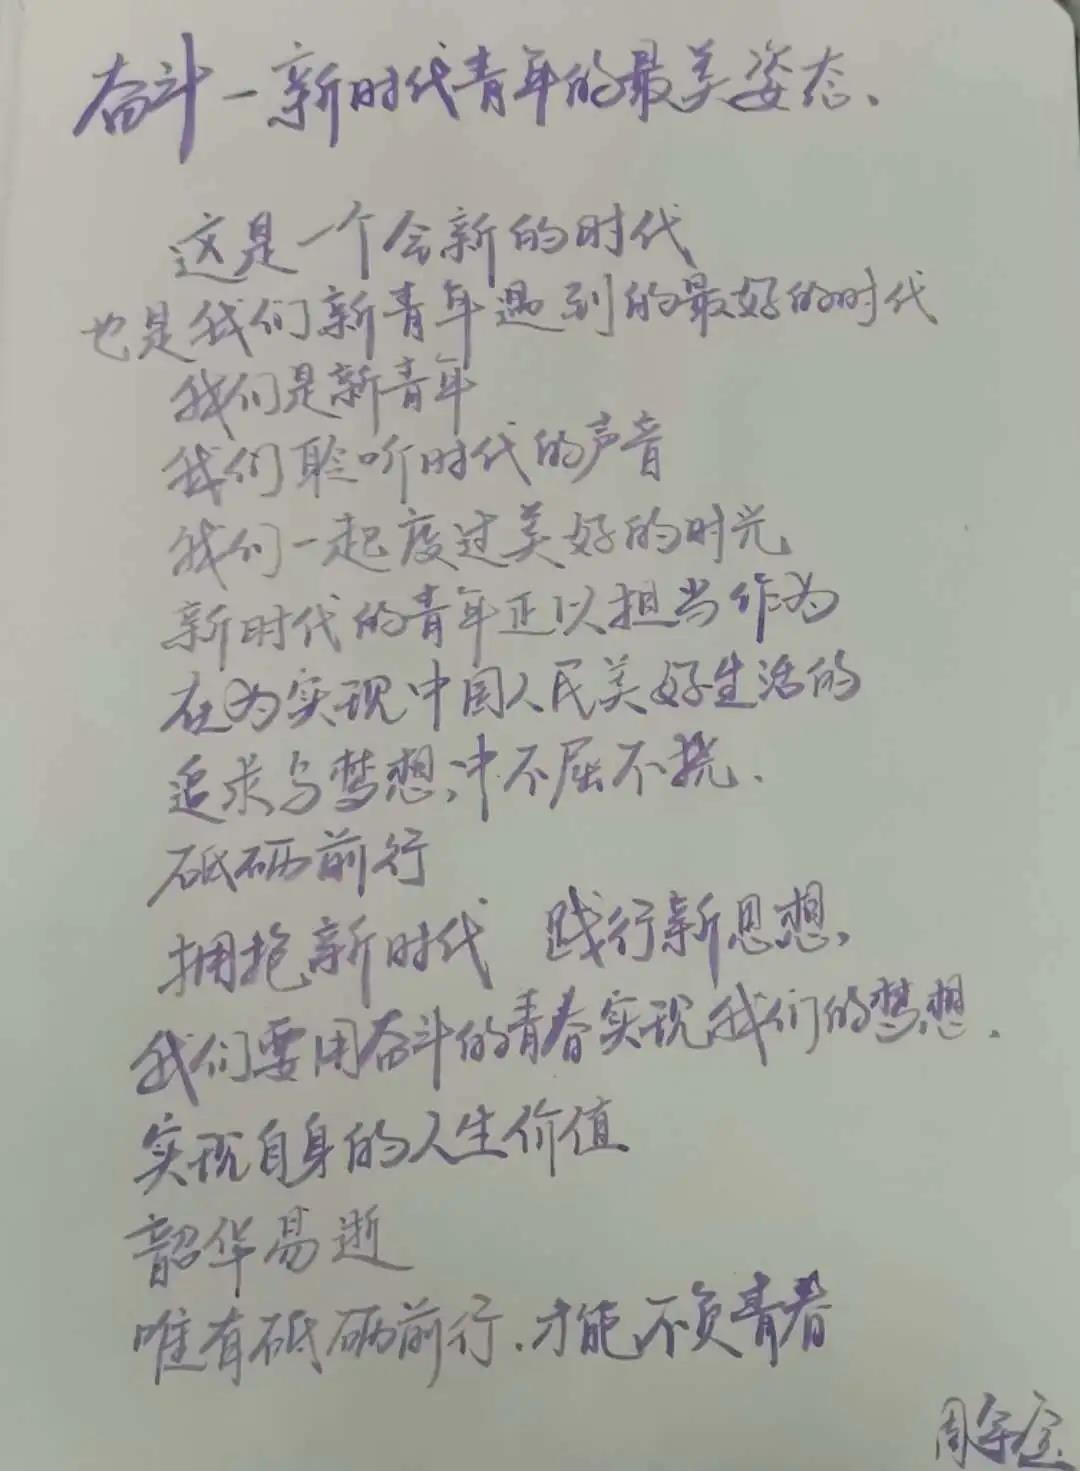 奋斗—新时代青年的最美姿态、
这是一个会新的时代
也是我们新青年遇到的最好的时代
我们是新青年
我们聆听时代的声音
我们一起度过美好的时光
新时代的青年正以担当作为
在为实现中国人民美好生活的
追求与梦想中不屈不挠.
砥砺前行
拥抱新时代 践行新思想、
我们要用奋斗的青春实现我们的梦想.
实现自身的人生价值
韶华易逝
唯有砥砺前行.才能不负青春
周